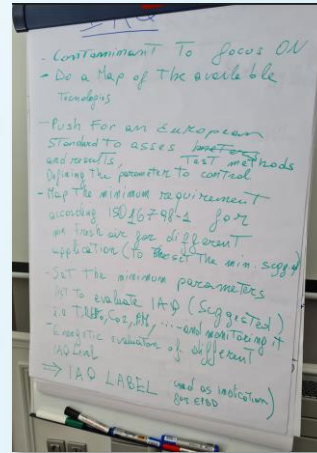 IAQ
- Contamiment To focus ON
- Do a Map of the available
Tecnologies
- Push For an European
Standard to asses
and results, Test methods
Defining the parameter to control
- Map the minimum requirement
according ISO16798-1 for
fresh air for different
application (to set the min. sugg.)
- Set the minimum parameters
to evaluate IAQ (Suggested)
CO2, PM, ... and monitoring it
- Energetic evaluation of different
IAQ Level
⇒ IAQ LABEL (and as indication
for EPBD)